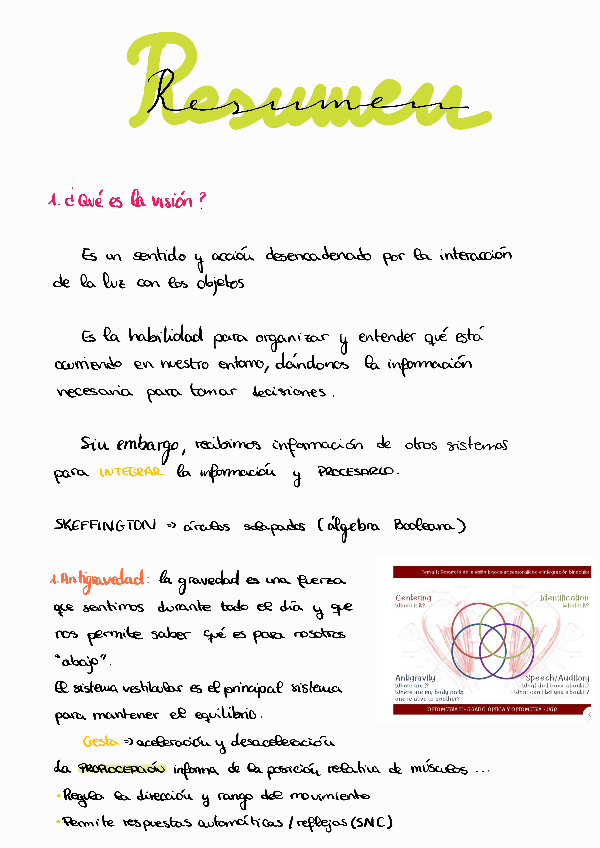 Resumen
1. ¿Qué es la visión?
Es un sentido y acción desencadenado por la interacción
de la luz con los objetos
Es la habilidad para organizar y entender qué está
ocurriendo en nuestro entorno, dándonos la información
necesaria para tomar decisiones.
Sin embargo, recibimos información de otros sistemas
para INTEGRAR la información y PROCESARLO.
SKEFFINGTON => círculos solapados (álgebra Booleana)
1. Antigravedad: la gravedad es una fuerza
que sentimos durante todo el día y que
nos permite saber qué es para nosotros
"abajo".
El sistema vestibular es el principal sistema
para mantener el equilibrio.
Gesta => aceleración y desaceleración
La PROPIOCEPCIÓN informa de la posición relativa de músculos ...
• Regula la dirección y rango del movimiento
• Permite respuestas automáticas / reflejos (SNC)
Centering
Where is it?
Identification
What is it?
Antigravity
Where am I?
Where are my body parts
and relative to another?
Speech/Auditory
What do I know about it?
What can I tell you about it?
OPTOMETRÍA II - GRADO ÓPTICA Y OPTOMETRÍA - UGR